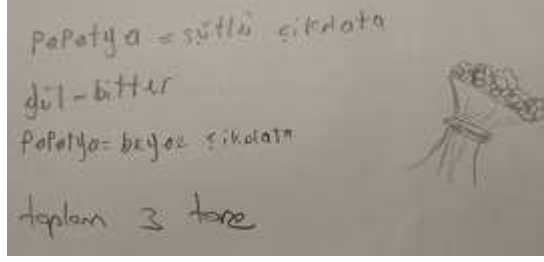 papatya = sütlü çikolata
gül - bitter
papatya = beyaz çikolata
toplam 3 tane